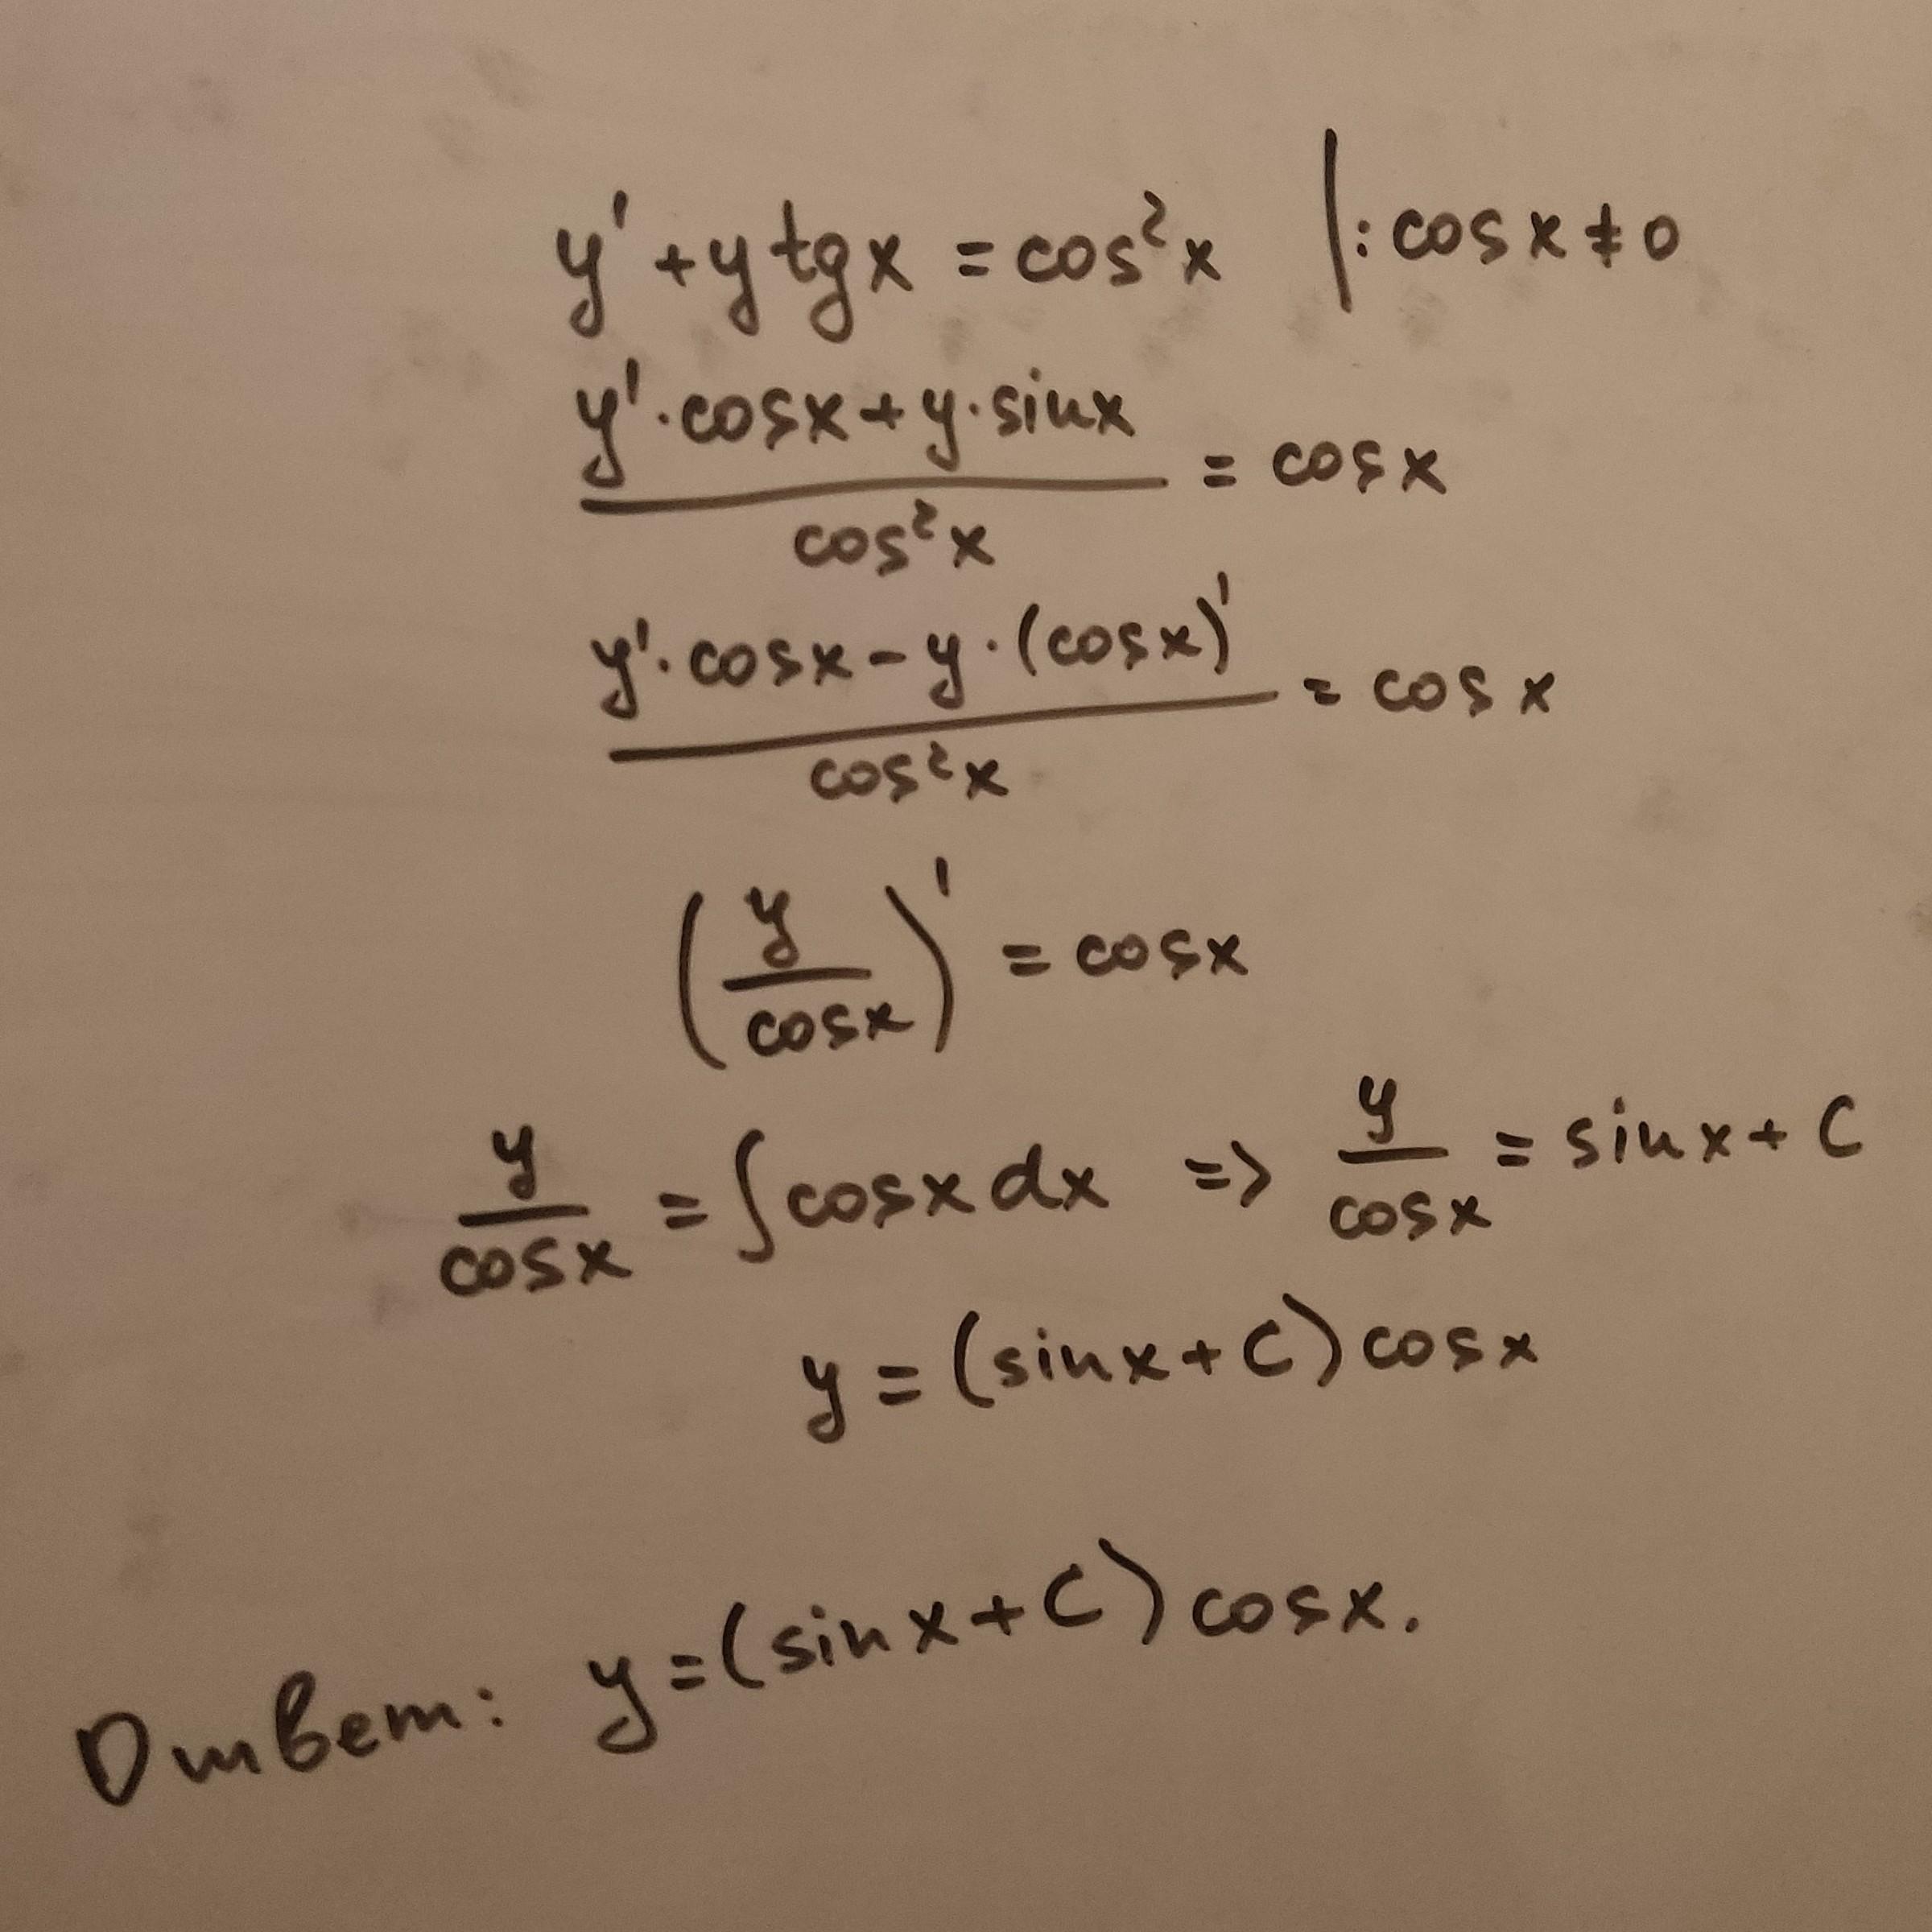 y' + y tg x = cos²x |: cos x ≠ 0
(y'·cosx + y·sinx)/cos²x = cos x
(y'·cosx - y·(cosx)')/cos²x = cos x
(y/cosx)' = cosx
y/cosx = ∫cosx dx => y/cosx = sinx + C
y = (sinx + C) cosx
Ответ: y = (sin x + C) cosx.